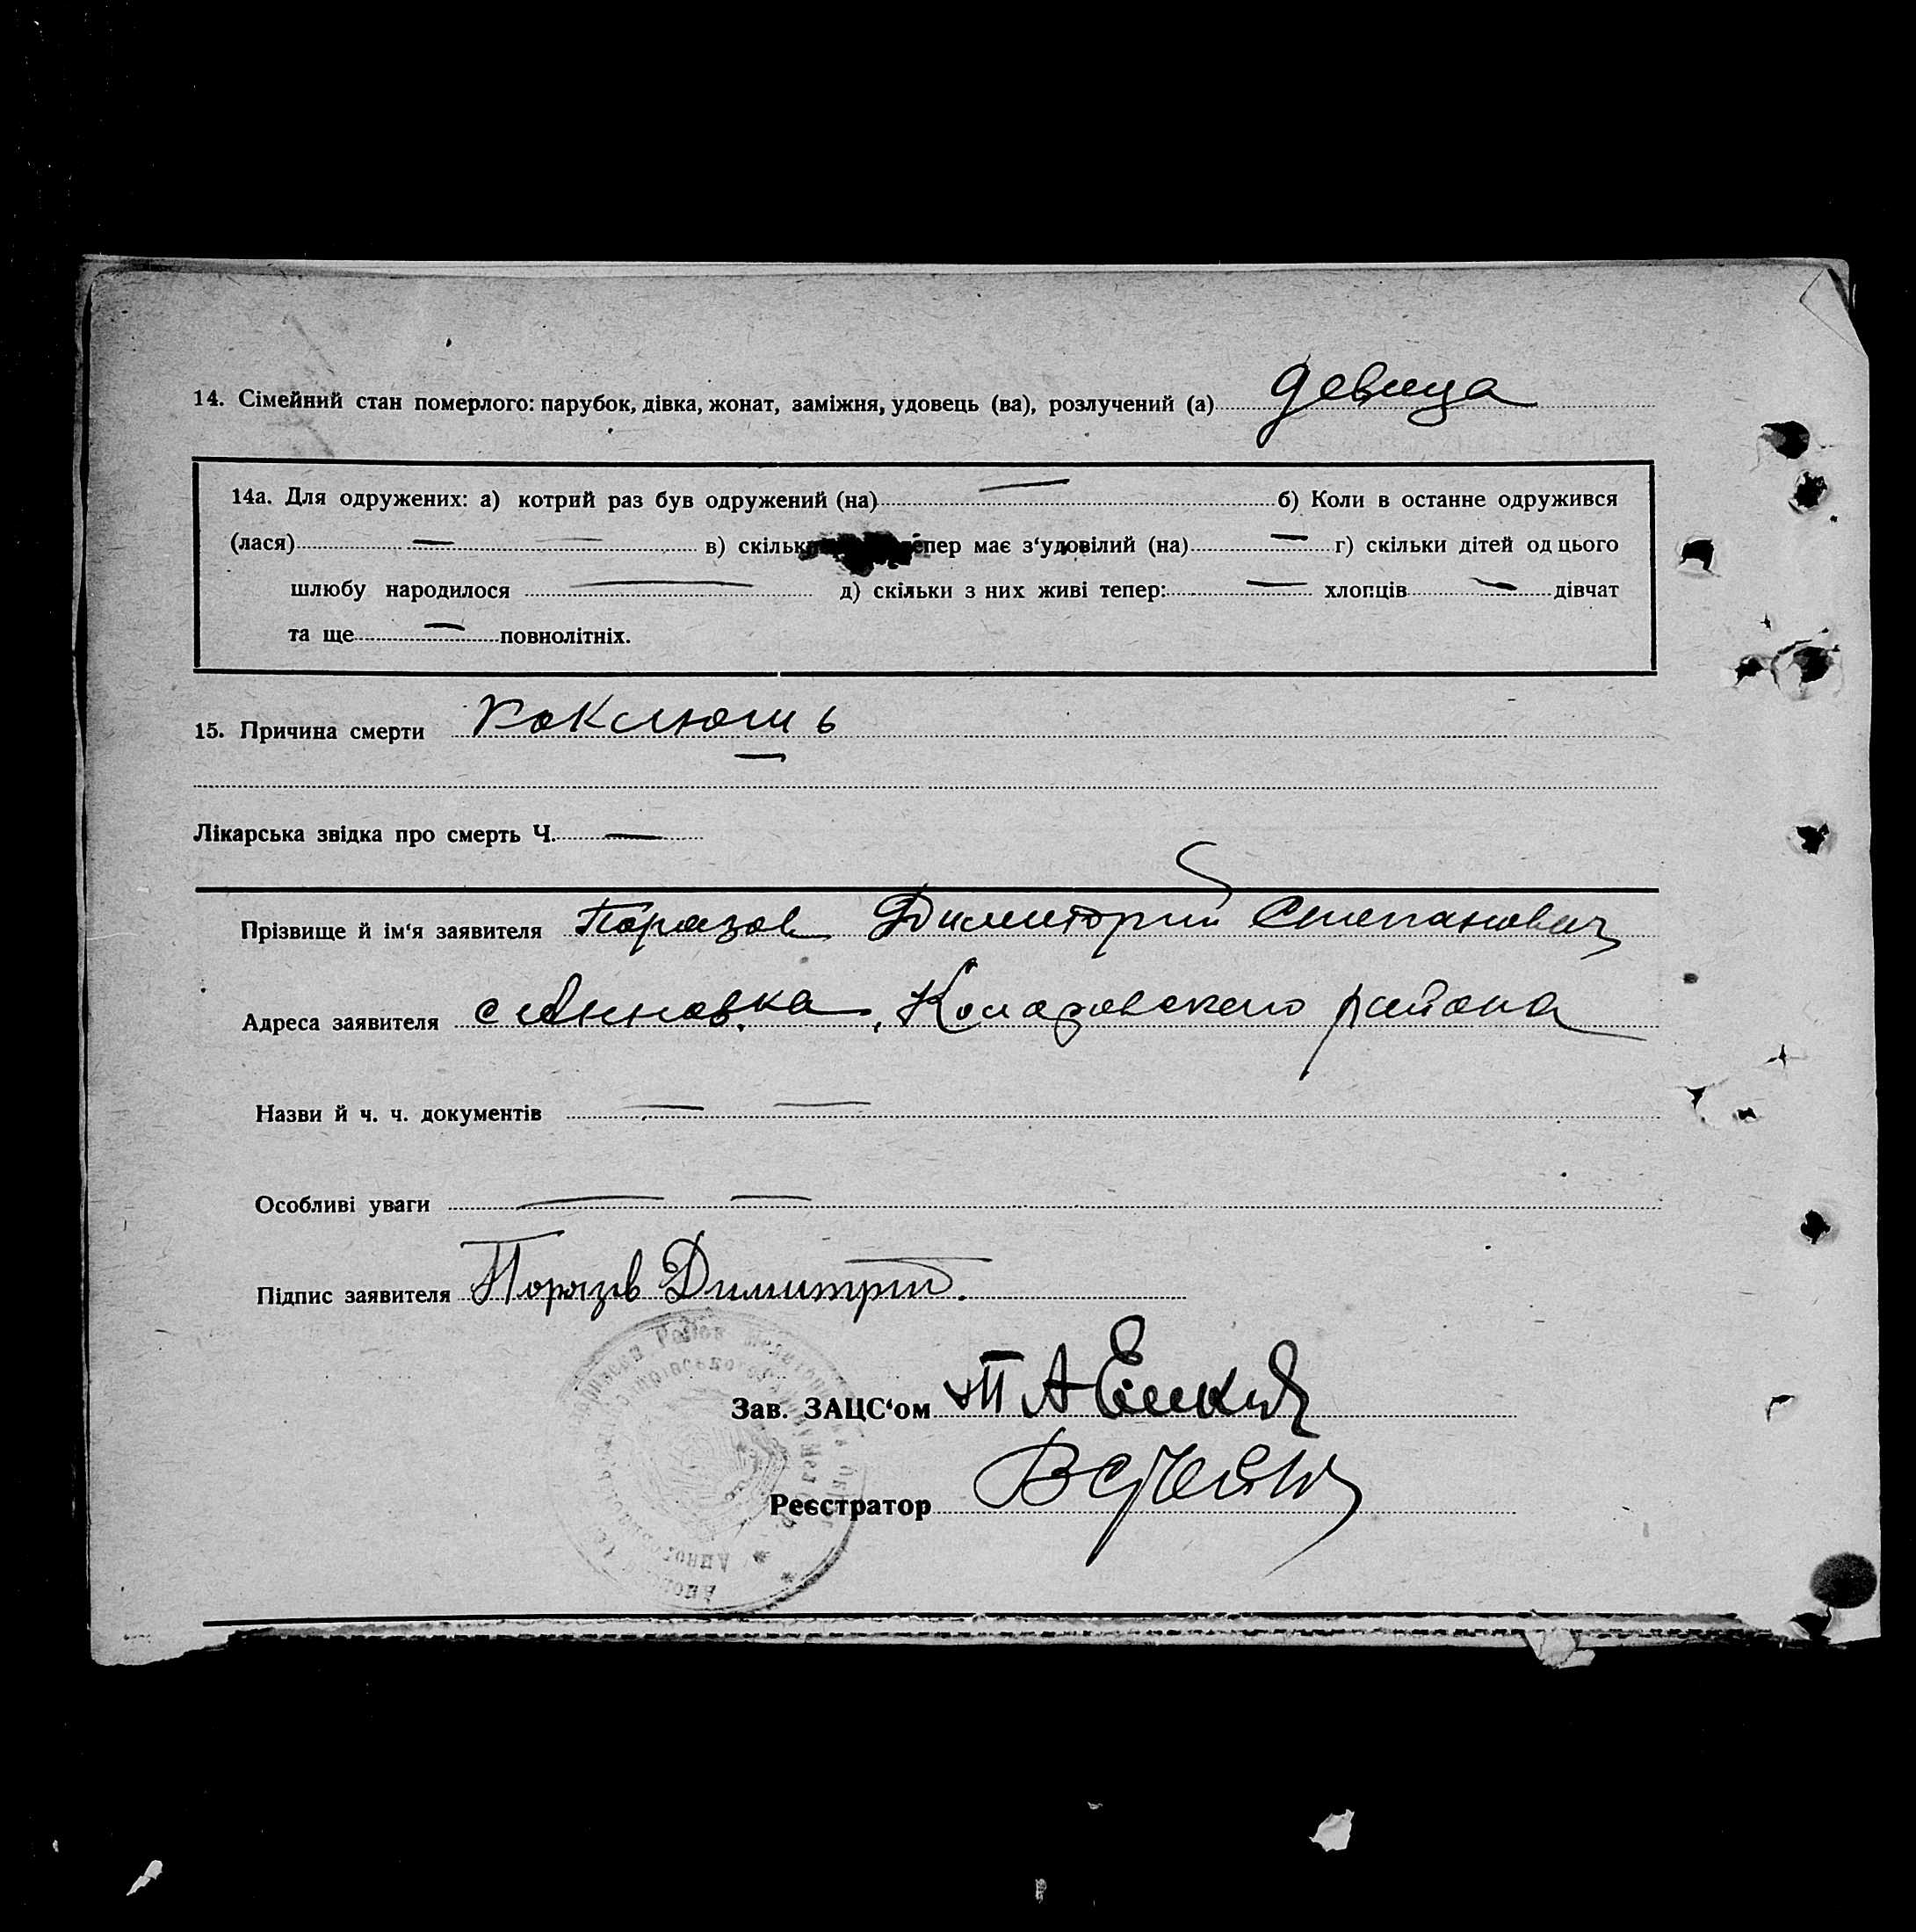 14. Сімейний стан померлого: парубок, дівка, жонат, заміжня, удовець (ва), розлучений (а) девица
14а. Для одружених: а) котрий раз був одружений (на) — б) Коли в останне одружився
(лася) — — в) скільки тепер має з‘удовілий (на) — г) скільки дітей од цього
шлюбу народилося — д) скільки з них живі тепер: — хлопців — дівчат
та ще — повнолітніх.
15. Причина смерти коклюшь
Лікарська звідка про смерть Ч. —
Прізвище й ім‘я заявителя Поразов Димиторий Степанович
Адреса заявителя с Анновка, Коларовского района
Назви й ч. ч. документів — —
Особливі уваги — —
Підпис заявителя Поразов Димитрий.
Зав. ЗАЦС‘ом
Реєстратор